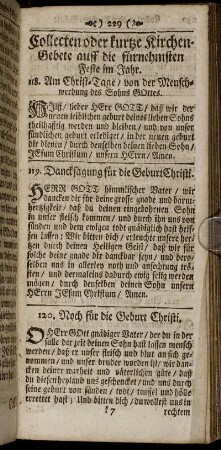 ) 229 (
Collecten oder kurtze Kirchen-
Gebete auff die fürnehmsten
Feste im Jahr.
118. Am Christ-Tage / von der Mensch-
werdung des Sohns GOttes.
Hilff / lieber HErr GOTT / daß wir der
neuen leiblichen geburt deines lieben Sohns
theilhafftig werden und bleiben / und von unser
sündlichen geburt erlediget / in der neuen geburt
dir dienen / durch denselben deinen lieben Sohn /
JEsum Christum / unsern HErrn / Amen.
119. Dancksagung für die Geburt Christi.
HERR GOTT himmlischer Vater / wir
dancken dir für deine grosse gnade und barm-
hertzigkeit / daß du deinen eingebohrnen Sohn
in unser fleisch kommen / und durch ihn uns von
sünden und dem ewigen todt gnädiglich hast helf-
fen lassen: Wir bitten dich / erleuchte unsere her-
tzen durch deinen Heiligen Geist / daß wir für
solche deine gnade dir danckbar seyn / und dersel-
ben uns in allerley noth und anfechtung trö-
sten / und dermaleins dadurch ewig selig werden
mögen / durch denselben deinen Sohn unsern
HErrn JEsum Christum / Amen.
120. Noch für die Geburt Christi.
O HErr GOtt gnädiger Vater / der du in der
fülle der zeit deinen Sohn hast lassen mensch
werden / daß er unser fleisch und blut an sich ge-
nommen / und unser bruder worden ist / wir dan-
cken deiner warheit und väterlichen güte / daß
du diesen heyland uns geschencket / und uns durch
seine geburt von sünden / todt / teuffel und hölle
errettet hast / Und bitten dich / du wollst uns in
rechtem